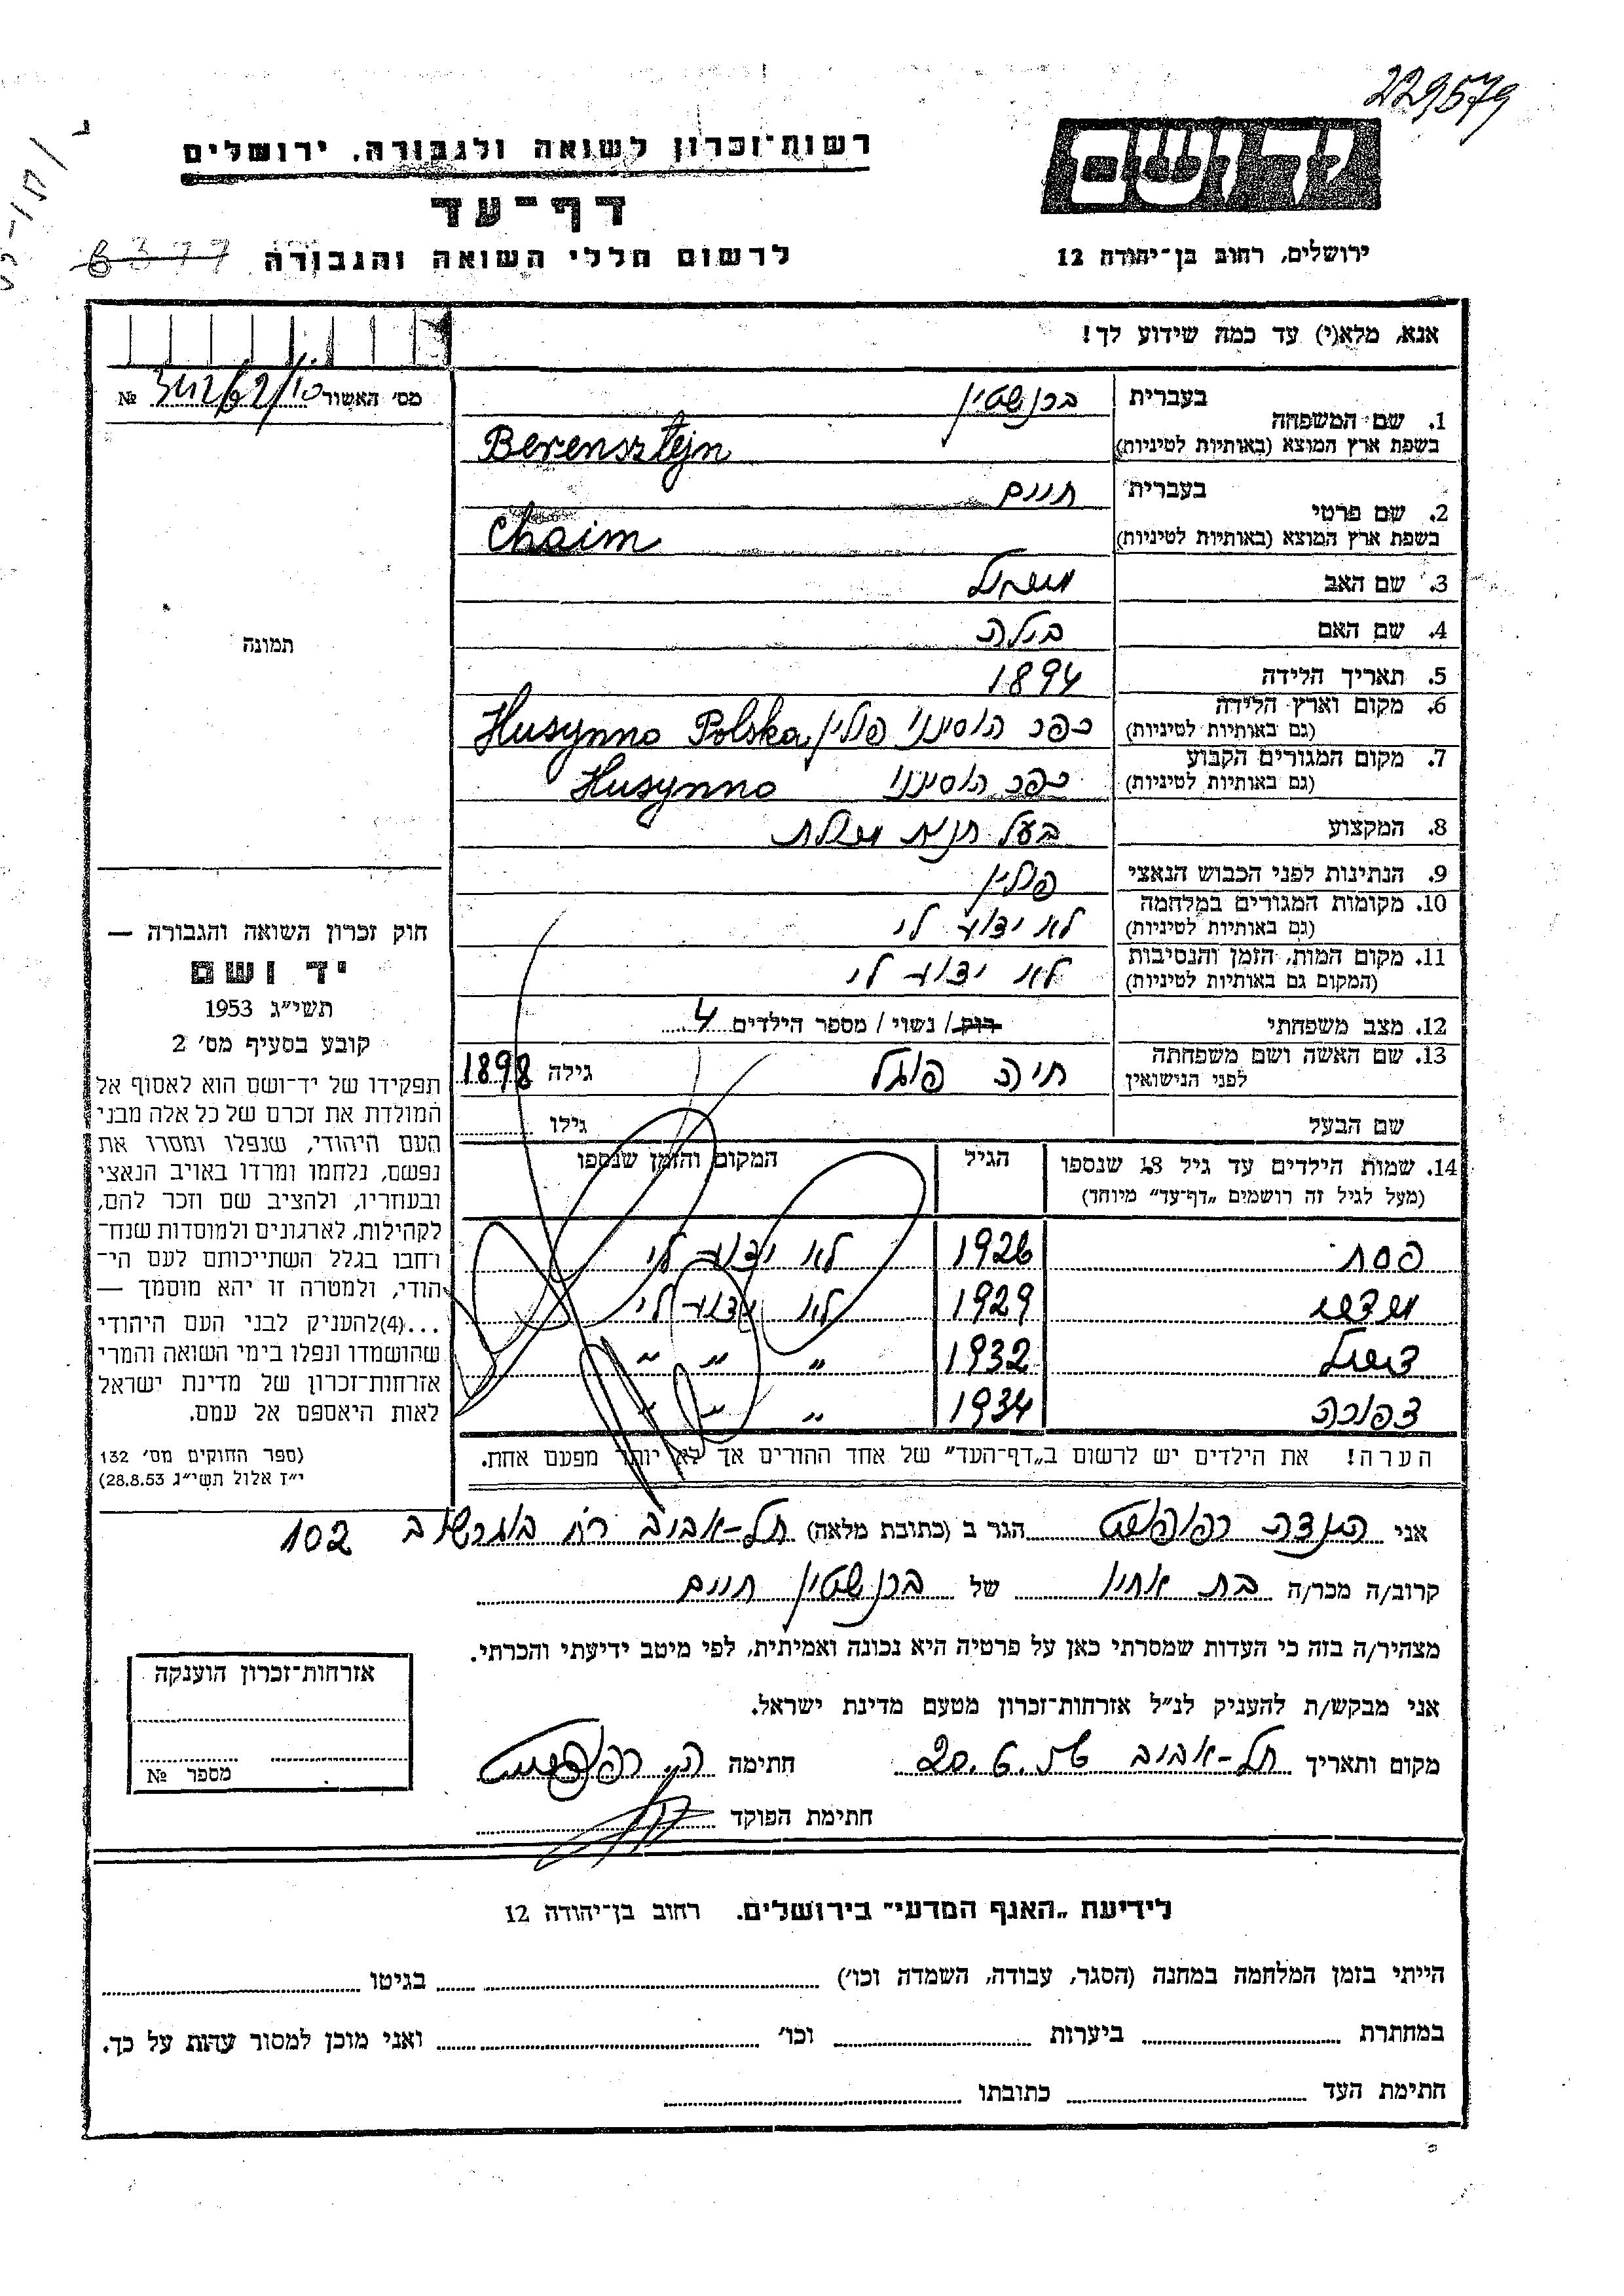 229579
יד ושם
רשות־זכרון לשואה ולגבורה, ירושלים
דף־עד
לרשום חללי השואה והגבורה
6377
ירושלים, רחוב בן־יהודה 12
אנא, מלא(י) עד כמה שידוע לך!
מס׳ האשור №
1. שם המשפחה בעברית ברנשטיין
בשפת ארץ המוצא (באותיות לטיניות) Berensztejn
2. שם פרטי בעברית חיים
בשפת ארץ המוצא (באותיות לטיניות) Chaim
3. שם האב
4. שם האם בילה
5. תאריך הלידה 1894
6. מקום וארץ הלידה (גם באותיות לטיניות) כפר הוסינו פולין Husynno Polska
7. מקום המגורים הקבוע (גם באותיות לטיניות) כפר הוסינו Husynno
8. המקצוע בעל חנות
9. הנתינות לפני הכבוש הנאצי פולין
10. מקומות המגורים במלחמה (גם באותיות לטיניות) לא ידוע לי
11. מקום המות, הזמן והנסיבות (המקום גם באותיות לטיניות) לא ידוע לי
12. מצב משפחתי רוק / נשוי / מספר הילדים 4
13. שם האשה ושם משפחתה לפני הנישואין חיה פוגל גילה 1898
שם הבעל גילו
14. שמות הילדים עד גיל 18 שנספו (מעל לגיל זה רושמים „דף־עד” מיוחד) הגיל המקום והזמן שנספו
פסח 1926 לא ידוע לי
1929 לא ידוע לי
1932 " " "
צפורה 1934 " " "
הערה! את הילדים יש לרשום ב„דף־העד” של אחד ההורים אך לא יותר מפעם אחת.
תמונה
חוק זכרון השואה והגבורה —
יד ושם
תשי״ג 1953
קובע בסעיף מס׳ 2
תפקידו של יד־ושם הוא לאסוף אל
המולדת את זכרם של כל אלה מבני
העם היהודי, שנפלו ומסרו את
נפשם, נלחמו ומרדו באויב הנאצי
ובעוזריו, ולהציב שם וזכר להם,
לקהילות, לארגונים ולמוסדות שנח־
רחבו בגלל השתייכותם לעם הי־
הודי, ולמטרה זו יהא מוסמך —
...(4)להעניק לבני העם היהודי
שהושמדו ונפלו בימי השואה והמרי
אזרחות־זכרון של מדינת ישראל
לאות היאספם אל עמם.
(ספר החוקים מס׳ 132
י״ז אלול תשי״ג 28.8.53)
אני הגר ב (כתובת מלאה) תל-אביב רח בוגרשוב 102
קרוב/ה מכר/ה בת אחיו של ברנשטיין חיים
מצהיר/ה בזה כי העדות שמסרתי כאן על פרטיה היא נכונה ואמיתית, לפי מיטב ידיעתי והכרתי.
אני מבקש/ת להעניק לנ״ל אזרחות־זכרון מטעם מדינת ישראל.
מקום ותאריך תל-אביב 20.6.56 חתימה
חתימת הפוקד
אזרחות־זכרון הוענקה
מספר №
לידיעת „האגף המדעי” בירושלים. רחוב בן־יהודה 12
הייתי בזמן המלחמה במחנה (הסגר, עבודה, השמדה וכו׳) בגיטו
במחתרת ביערות וכו׳ ואני מוכן למסור עדות על כך.
חתימת העד כתובתו